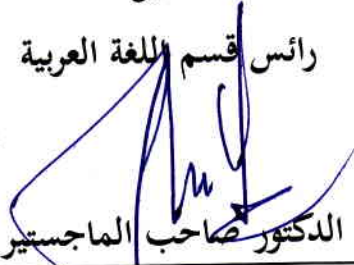 رائس قسم اللغة العربية
الدكتور صاحب الماجستير